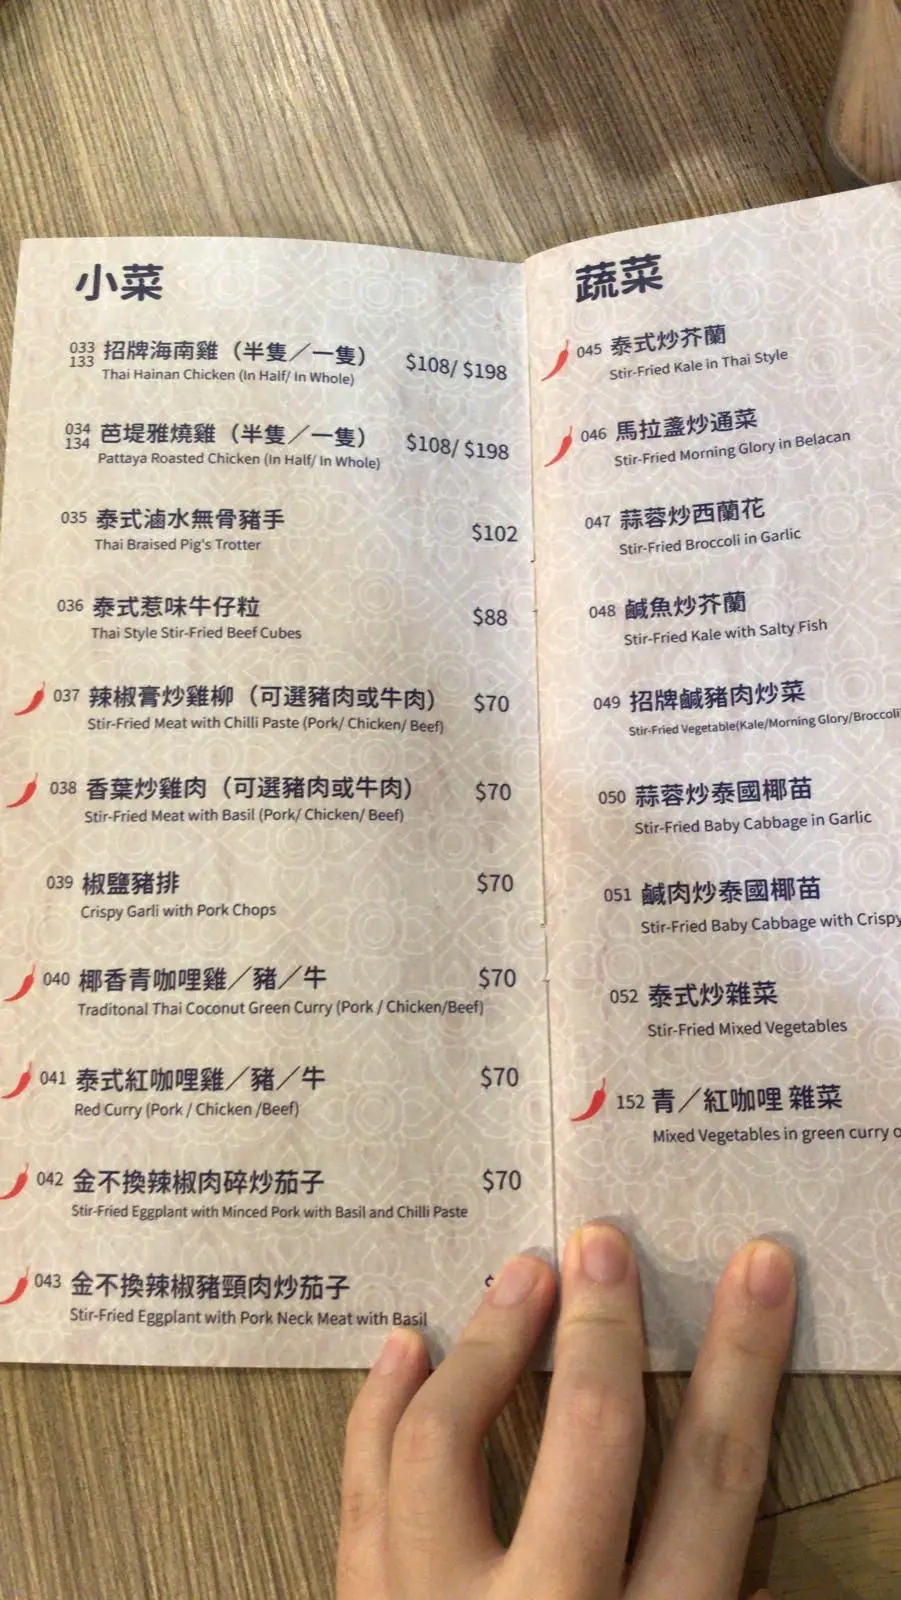 小菜
033
133
招牌海南雞（半隻／一隻） $108/ $198
Thai Hainan Chicken (In Half/ In Whole)
034
134
芭堤雅燒雞（半隻／一隻） $108/ $198
Pattaya Roasted Chicken (In Half/ In Whole)
035 泰式滷水無骨豬手 $102
Thai Braised Pig's Trotter
036 泰式惹味牛仔粒 $88
Thai Style Stir-Fried Beef Cubes
037 辣椒膏炒雞柳（可選豬肉或牛肉） $70
Stir-Fried Meat with Chilli Paste (Pork/ Chicken/ Beef)
038 香葉炒雞肉（可選豬肉或牛肉） $70
Stir-Fried Meat with Basil (Pork/ Chicken/ Beef)
039 椒鹽豬排 $70
Crispy Garli with Pork Chops
040 椰香青咖哩雞／豬／牛 $70
Traditonal Thai Coconut Green Curry (Pork / Chicken/Beef)
041 泰式紅咖哩雞／豬／牛 $70
Red Curry (Pork / Chicken /Beef)
042 金不換辣椒肉碎炒茄子 $70
Stir-Fried Eggplant with Minced Pork with Basil and Chilli Paste
043 金不換辣椒豬頸肉炒茄子
Stir-Fried Eggplant with Pork Neck Meat with Basil
蔬菜
045 泰式炒芥蘭
Stir-Fried Kale in Thai Style
046 馬拉盞炒通菜
Stir-Fried Morning Glory in Belacan
047 蒜蓉炒西蘭花
Stir-Fried Broccoli in Garlic
048 鹹魚炒芥蘭
Stir-Fried Kale with Salty Fish
049 招牌鹹豬肉炒菜
Stir-Fried Vegetable(Kale/Morning Glory/Broccoli
050 蒜蓉炒泰國椰苗
Stir-Fried Baby Cabbage in Garlic
051 鹹肉炒泰國椰苗
Stir-Fried Baby Cabbage with Crispy
052 泰式炒雜菜
Stir-Fried Mixed Vegetables
152 青／紅咖哩 雜菜
Mixed Vegetables in green curry